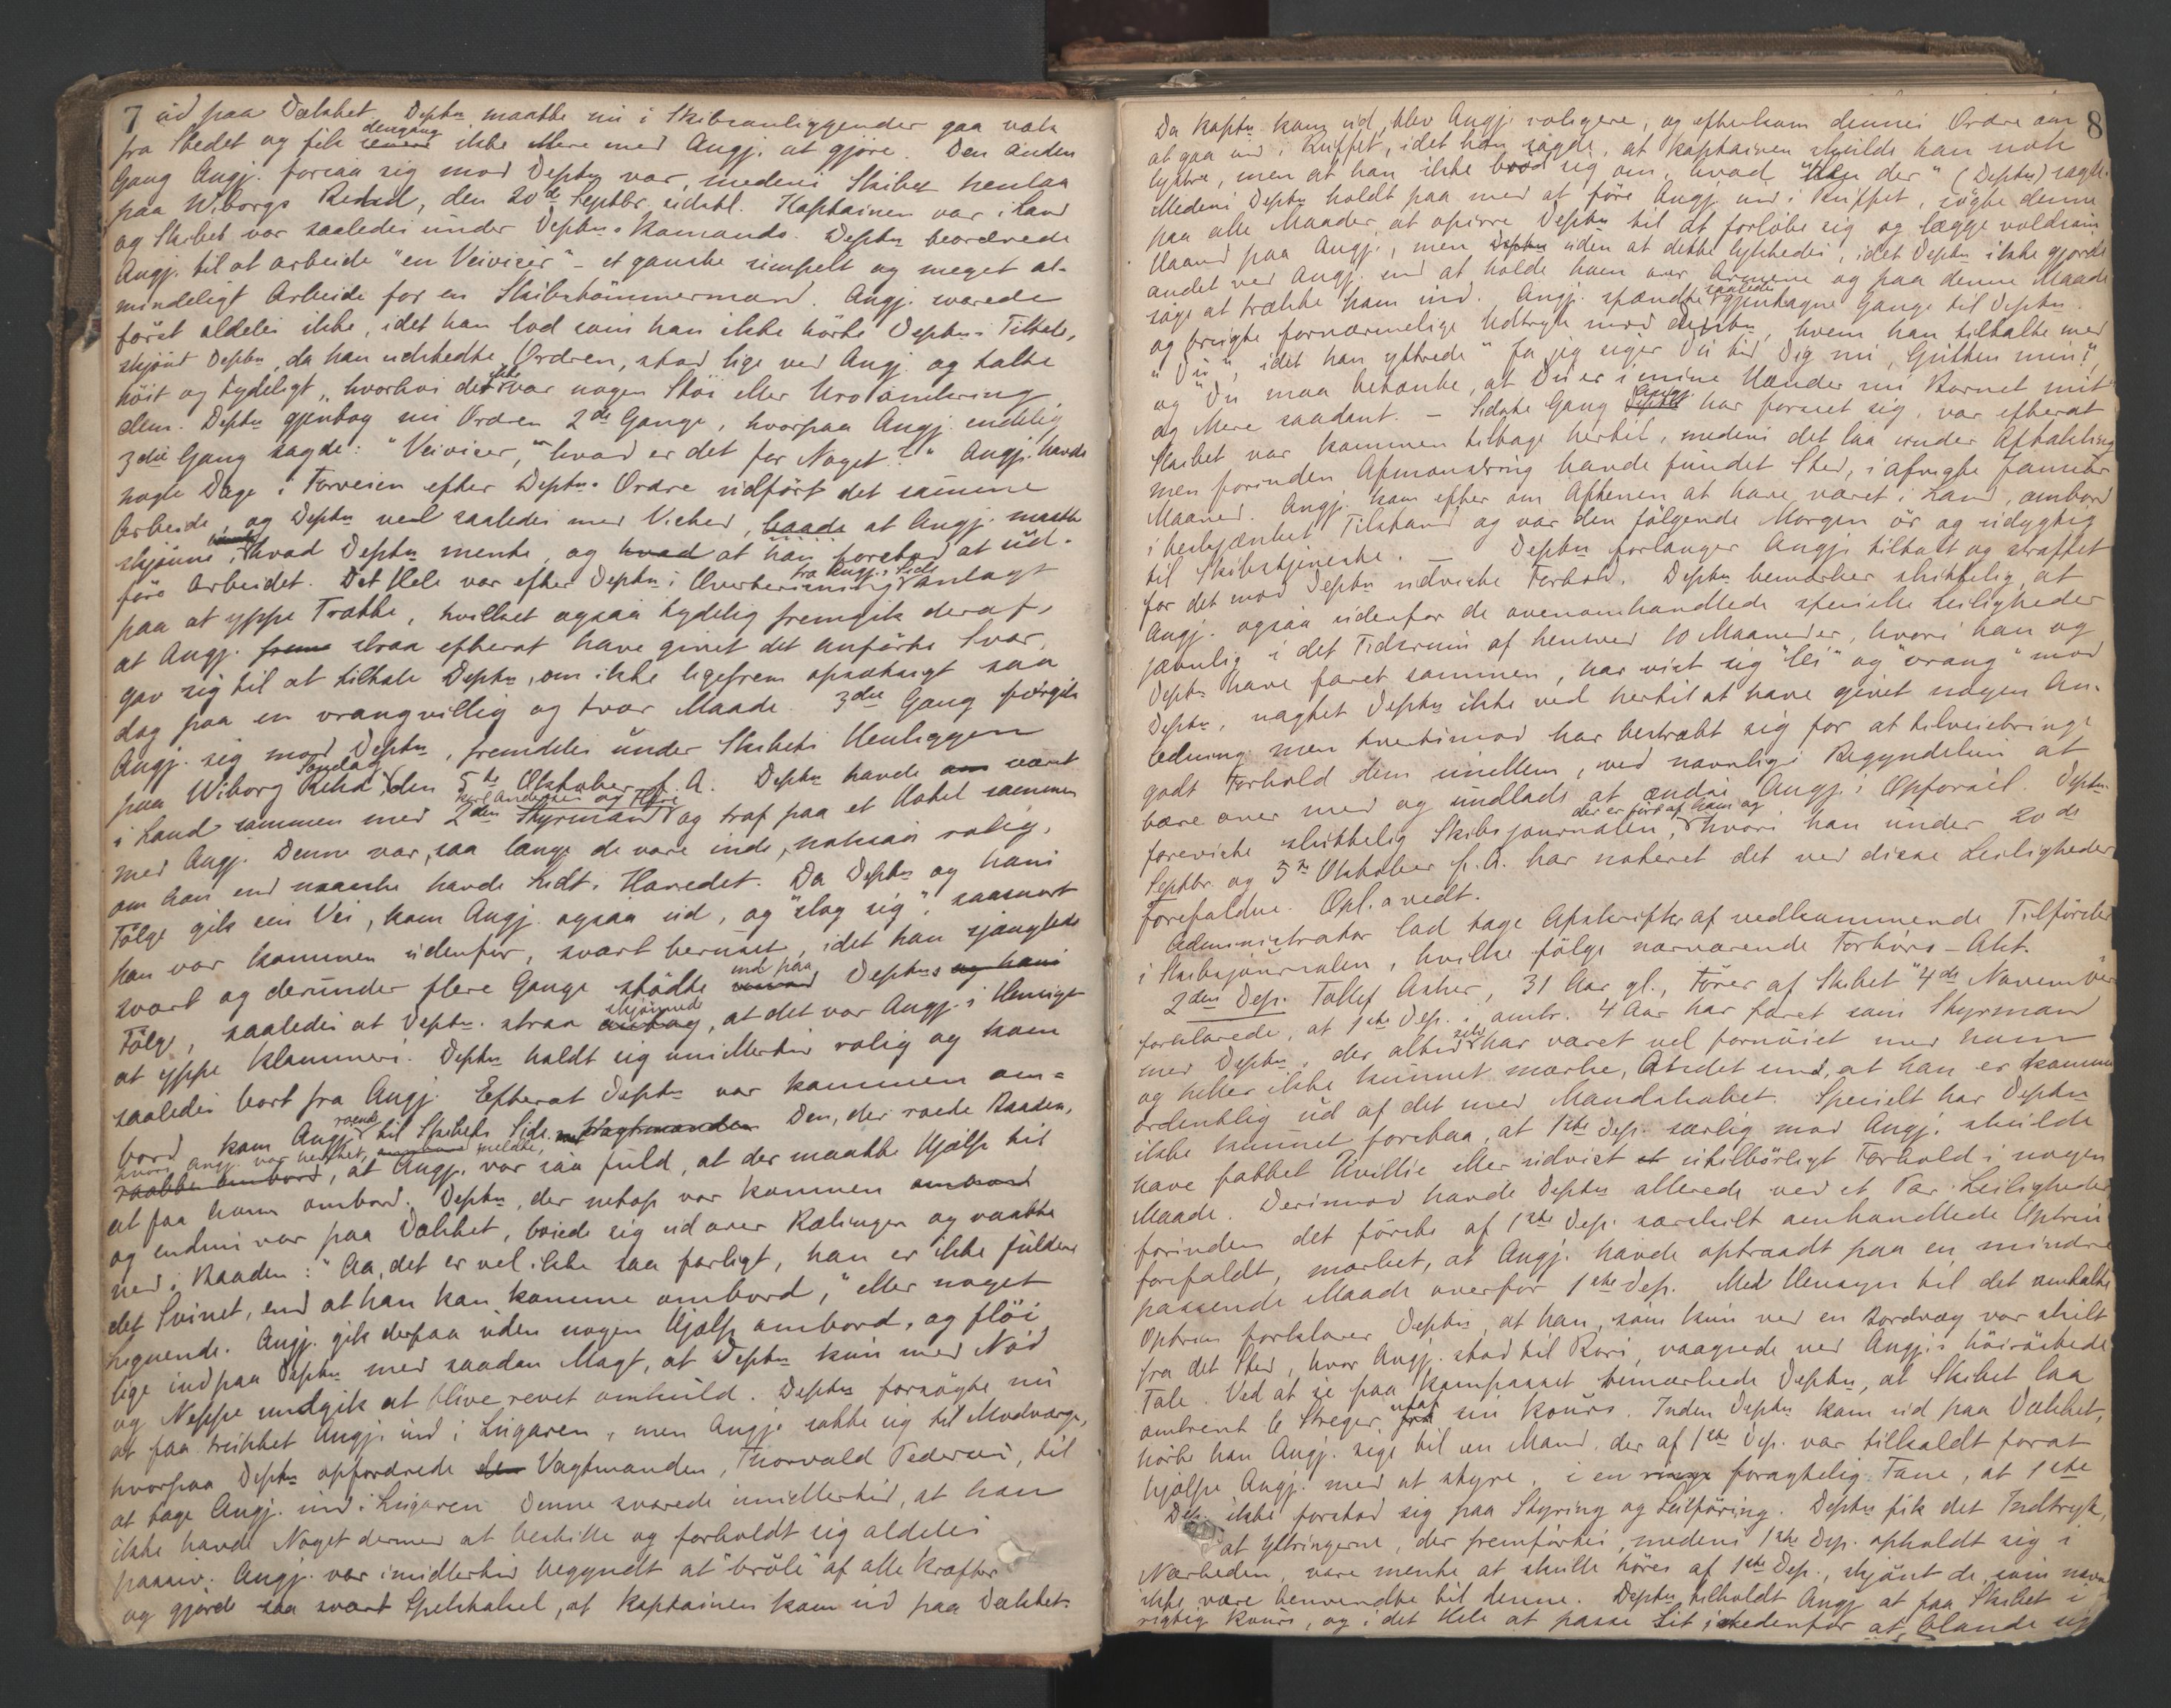 7
ud paa Dækket. Deptn maatte nu i Skibsanliggender gaa væk
fra Stedet og fik dengang ikke Mere med Angj. at gjøre. Den anden
Gang Angj. forsaa sig mod Deptn var, medens Skibet henlaa
paa Wiborgs Rehd, den 20de Septbr. sidstl. Kaptainen var iland
og Skibet var saaledes under Deptns Komando. Deptn beordrede
Angj. til at arbeide "en Veiviser" - et ganske simpelt og meget al-
mindeligt Arbeide for en Skibstömmermand. Angj. svarede
först aldeles ikke, idet han lod som han ikke hörte Deptns Tiltale,
skjönt Deptn, da han udstedte Ordren, stod lige ved Angj. og talte
höit og tydeligt, hvorhos der ikke var nogen Stöi eller Uro omkring
dem. Deptn gjentog nu Ordren 2de Gange, hvorpaa Angj. endelig
3die Gang sagde: "Veiviser," "hvad er det for Noget?" Angj. havde
nogle Dage i Forveien efter Deptns Ordre udfört det samme
Arbeide, og Deptn ved saaledes med Vished, baade at Angj. maatte
skjönne, hvad Deptn mente, og at han forstod at ud-
före Arbeidet. Det Hele var efter Deptns Overbevisning fra Angj.s Side anlagt
paa at yppe Trætte, hvilket ogsaa tydelig fremgik deraf,
at Angj. strax efterat have givet det anförte Svar,
gav sig til at tiltale Deptn, om ikke ligefrem opsætsigt saa
dog paa en vrangvillig og tvær Maade. 3die Gang forgik
Angj. sig mod Deptn, fremdeles under Skibets Henliggen
paa Wiborg Rehd, Söndag den 5te Oktober f. A. Deptn havde været
i Land sammen med 2den Styrmand Karl Andersen og Flere og traf paa et Hotel sammen
med Angj. Denne var, saa længe de vare inde, noksaa rolig,
om han end maaske havde Lidt i Hovedet. Da Deptn og hans
Fölge gik sin Vei, kom Angj. ogsaa ud, og "slog sig", saasnart
han var kommen udenfor, svært beruset, idet han sjanglede
svært og derunder flere Gange stödte ind paa Deptns
Fölge, saaledes at Deptn. strax skjönnede, at det var Angj.s Hensigt
at yppe Klammeri. Deptn holdt sig imidlertid rolig og kom
saaledes bort fra Angj. Efterat Deptn var kommen om-
bord kom Angj. roende til Skibets Side. Den, der roede Baaden,
hvori Angj. var hentet, meldte, at Angj. var saa fuld, at der maatte Hjælp til
at faa ham ombord. Deptn, der netop var kommen ombord
og endnu var paa Dækket, böiede sig ud over Rælingen og raabte
ned i Baaden: "Aa, det er vel ikke saa farligt, han er ikke fuldere
det Svinet, end at han kan komme ombord," eller noget
Lignende. Angj. gik derpaa uden nogen Hjælp ombord, og flöi
lige ind paa Deptn med saadan Magt, at Deptn kun med Nöd
og Neppe undgik at blive revet omkuld. Deptn forsögte nu
at faa Angj. ind i Lugaren, men Angj. satte sig til Modværge,
hvorpaa Deptn opfordrede Vagtmanden, Thorvald Pedersen, til
at tage Angj. ind i Lugaren. Denne svarede imidlertid, at han
ikke havde Noget dermed at bestille og forholdt sig aldeles
passiv. Angj. var imidlertid begyndt at "bröle" af alle Kræfter
og gjorde saa svært Spektakel, at Kaptainen kom ud paa Dækket.
8
Da Kaptn kom ud, blev Angj. roligere, og efterkom dennes Ordre om
at gaa ind i Ruffet, idet han sagde, at Kaptainen skulde han nok
lystre, men at han ikke bröd sig om, hvad "Han der" (Deptn) sagde.
Medens Deptn holdt paa med at före Angj. ind i Ruffet, sögte denne
paa alle Maader at opirre Deptn til at forlöbe sig og lægge voldsom
Haand paa Angj., men uden at dette lykkedes, idet Deptn ikke gjorde
andet ved Angj. end at holde ham om Armene og paa denne Maade
söge at trække ham ind. Angj. spændte saaledes gjentagne Gange til Deptn
og brugte fornærmelige Udtryk mod Deptn, hvem han tiltalte med
"Du", idet han yttrede "Ja jeg siger Du til Dig nu, Gutten min!"
og "Du maa betænke, at Du er i mine Hænder nu Barnet mit"
og Mere saadant. - Sidste Gang Angj. har forseet sig, var efterat
Skibet var kommen tilbage hertil, medens det laa under Aftakling
men forinden Afmönstring havde fundet Sted, i afvigte Januar
Maaned. Angj. kom efter om Aftenen at have været i Land, ombord
i beskjænket Tilstand og var den fölgende Morgen ör og udygtig
til Skibstjeneste. - Deptn forlanger Angj. tiltalt og straffet
for det mod Deptn udviste Forhold. Deptn bemærker sluttelig, at
Angj. ogsaa udenfor de ovenomhandlede specielle Leiligheder
jævnlig i det Tidsrum af henved 10 Maaneder, hvori han og
Deptn have faret sammen, har vist sig "lei" og "vrang" mod
Deptn, uagtet Deptn ikke ved hertil at have givet nogen An-
ledning men tvertimod har bestræbt sig for at tilveiebringe
godt Forhold dem imellem, ved navnlig i Begyndelsen at
bære over med og undlade at ændse Angj.s Opförsel. Deptn
foreviste sluttelig Skibsjournalen, der er fört af ham og hvori han under 20de
Septbr. og 5te Oktober f. A. har noteret det ved disse Leiligheder
Forefaldne. Opl. o vedt.
Administrator lod tage Afskrifter af vedkommende Tilförsler
i Skibsjournalen, hvilke fölge nærværende Forhörs-Akt.
2den Dep. Tollef Asker, 31 Aar gl., Förer af Skibet "4de November"
forklarede, at 1ste Dep. i omtr. 4 Aar har faret som Styrmand
med Deptn, der altid selv har været vel fornöiet med ham
og heller ikke kunnet mærke, Andet end, at han er kommen
ordentlig ud af det med Mandskabet. Specielt har Deptn
ikke kunnet forstaa, at 1ste Dep. særlig mod Angj. skulde
have fattet Uvillie eller udvist utilbörligt Forhold i nogen
Maade. Derimod havde Deptn allerede ved et Par Leiligheder
forinden det förste af 1ste Dep. særskilt omhandlede Optrin
forefaldt, mærket, at Angj. havde optraadt paa en mindre
passende Maade overfor 1ste Dep. Med Hensyn til det omtalte
Optrin forklarer Deptn, at han, som kun ved en Bordvæg var skilt
fra det Sted, hvor Angj. stod til Rors, vaagnede ved Angj.s höiröstede
Tale. Ved at se paa Kompasset bemærkede Deptn, at Skibet laa
omtrent 6 Streger udaf sin Kours. Inden Deptn kom ud paa Dækket,
hörte han Angj. sige til en Mand, der af 1ste Dep. var tilkaldt forat
hjælpe Angj. med at styre, i en foragtelig Tone, at 1ste
Dep. ikke forstod sig paa Styring og Seilföring. Deptn fik det Indtryk,
at Yttringerne, der fremförtes, medens 1ste Dep. opholdt sig i
Nærheden, vare mente at skulle höres af 1ste Dep., skjönt de, som nævnt
ikke vare henvendte til denne. Deptn tilholdt Angj. at faa Skibet i
rigtig Kours, og i det Hele at passe Sit istedenfor at blande sig